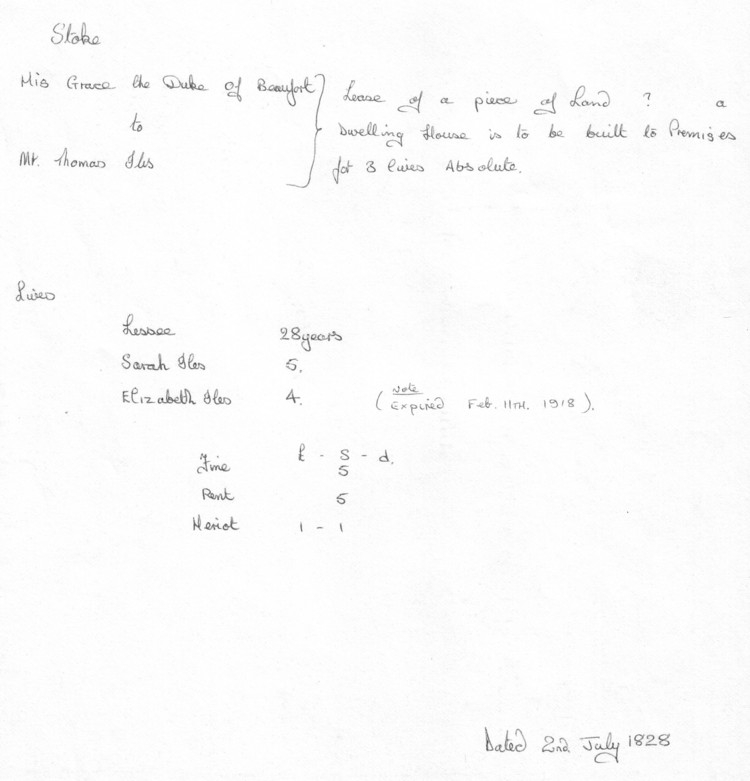 Stoke
His Grace the Duke of Beaufort
to
Mr. Thomas Iles
Lease of a piece of Land ? a
Dwelling House is to be built to Premises
for 3 lives Absolute.
Lives
Lessee 28 years
Sarah Iles 5.
Elizabeth Iles 4.
(Note Expired Feb. 11TH. 1918).
£ - S - d.
Fine 5
Rent 5
Heriot 1 - 1
Dated 2nd July 1828